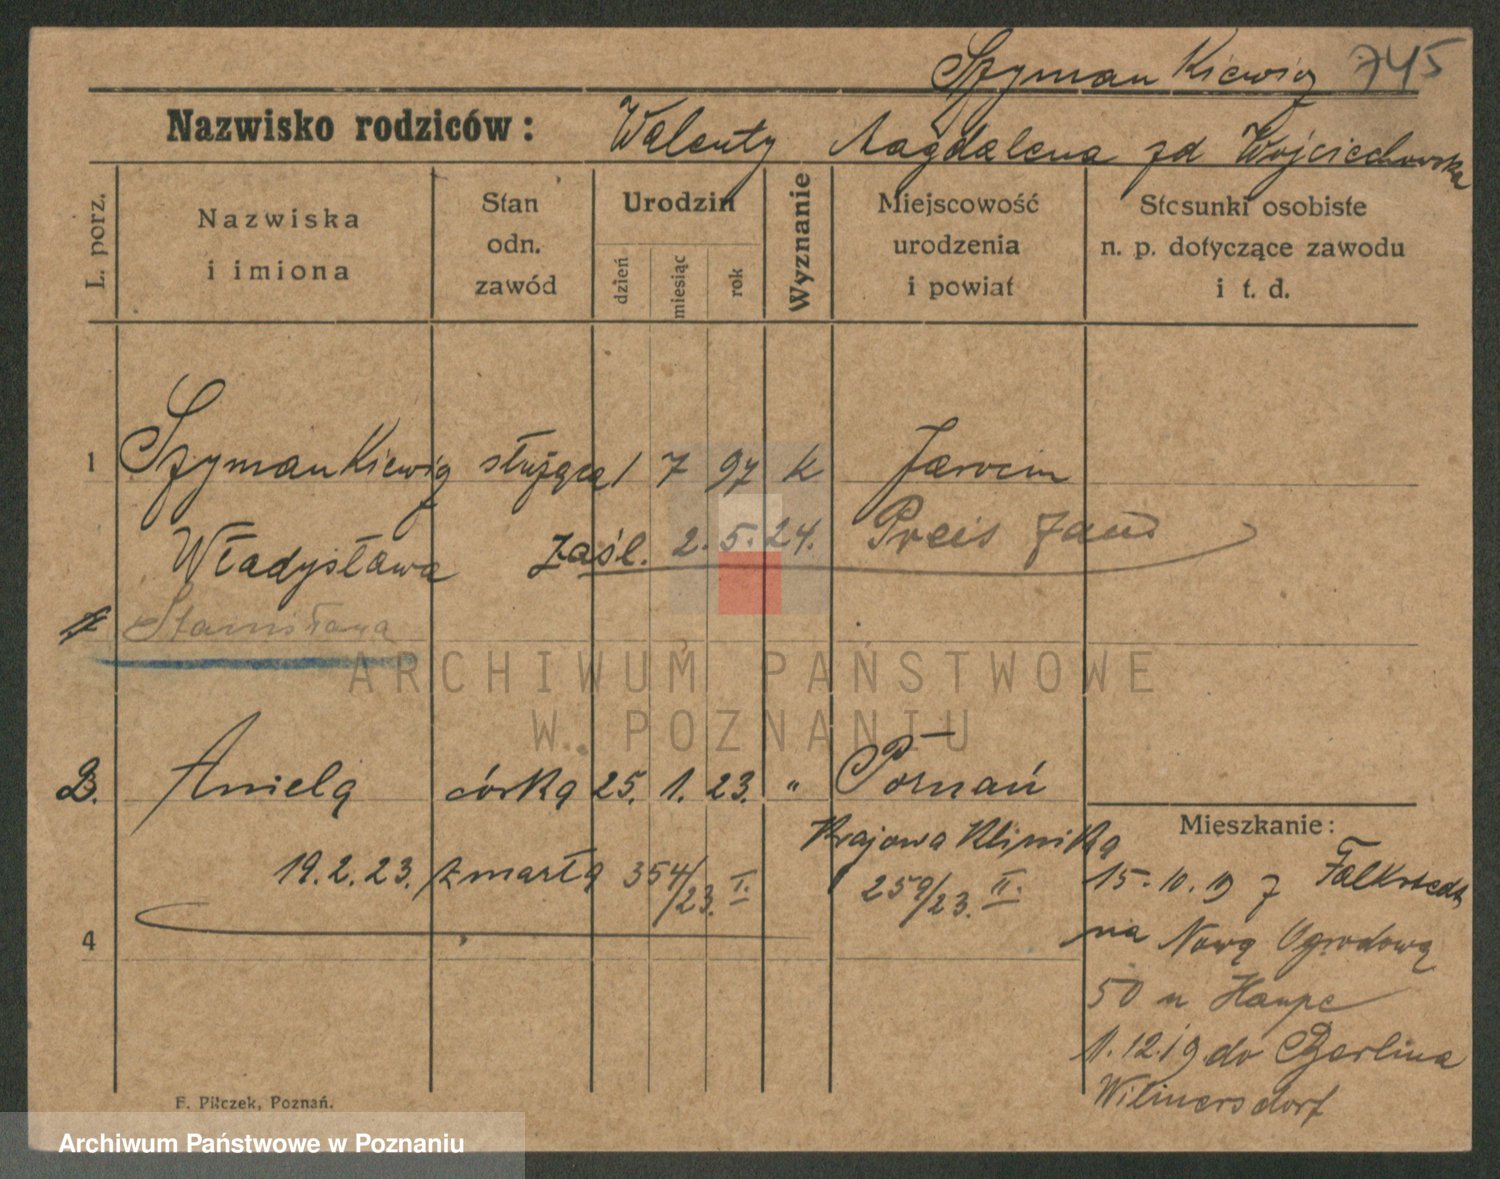 Szymankiewicz 745
Nazwisko rodziców: Walenty Magdalena zd Wojciechowska
L. porz.
Nazwiska i imiona
Stan odn. zawód
Urodzin
dzień
miesiąc
rok
Wyznanie
Miejscowość urodzenia i powiat
Stosunki osobiste n. p. dotyczące zawodu i t. d.
1 Szymankiewicz służąca 1 7 97 k Jarocin
Władysława zaśl. 2. 5. 24. Preis
Stanisława
B. Aniela córka 25. 1. 23. " Poznań
Krajowa Klinika
19. 2. 23. zmarła 354/23. I. 259/23. II.
4
Mieszkanie:
15. 10. 19 z
na Nową Ogrodową
50 u Haupe
1. 12. 19. do Berlina
Wilmersdorf
F. Pilczek, Poznań.
ARCHIWUM PAŃSTWOWE
W POZNANIU
Archiwum Państwowe w Poznaniu